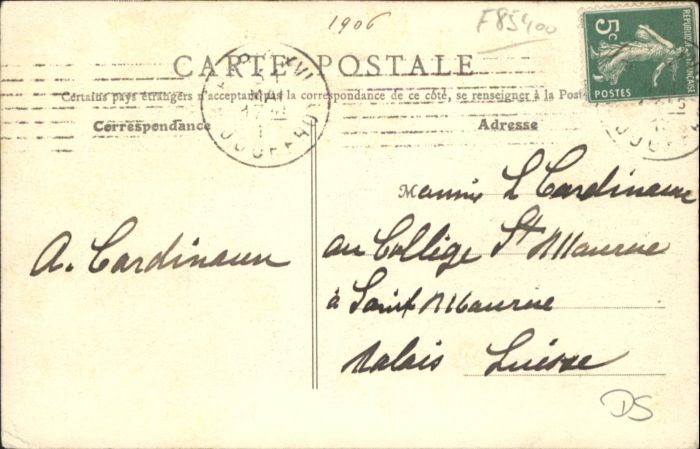 1906
F85400
5c
POSTES
CARTE POSTALE
Certains pays étrangers n'acceptant pas la correspondance de ce côté, se renseigner à la Poste
Correspondance
Adresse
L Cardinaux
A. Cardinaux
au Collège St Maurice
à Saint Maurice
Valais Suisse
DS